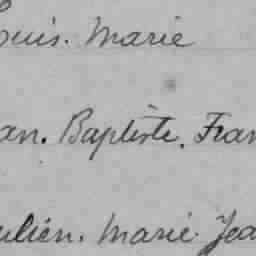 Louis. Marie
Jean. Baptiste. Fran
Julien. Marie. Jea